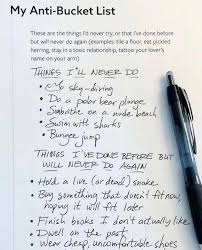 My Anti-Bucket List
These are the things I'll never try, or that I've done before
but will never do again (examples: tile a floor, eat pickled
herring, stay in a toxic relationship, tattoo your lover's
name on your arm)
THINGS I'LL NEVER DO
• Go sky-diving
• Do a polar bear plunge
• Sunbathe on a nude beach
• Swim with sharks
• Bungee jump
THINGS I'VE DONE BEFORE BUT
WILL NEVER DO AGAIN
• Hold a live (or dead) snake
• Buy something that doesn't fit now,
hoping it will fit later
• Finish books I don't actually like
• Dwell on the past
• Wear cheap, uncomfortable shoes